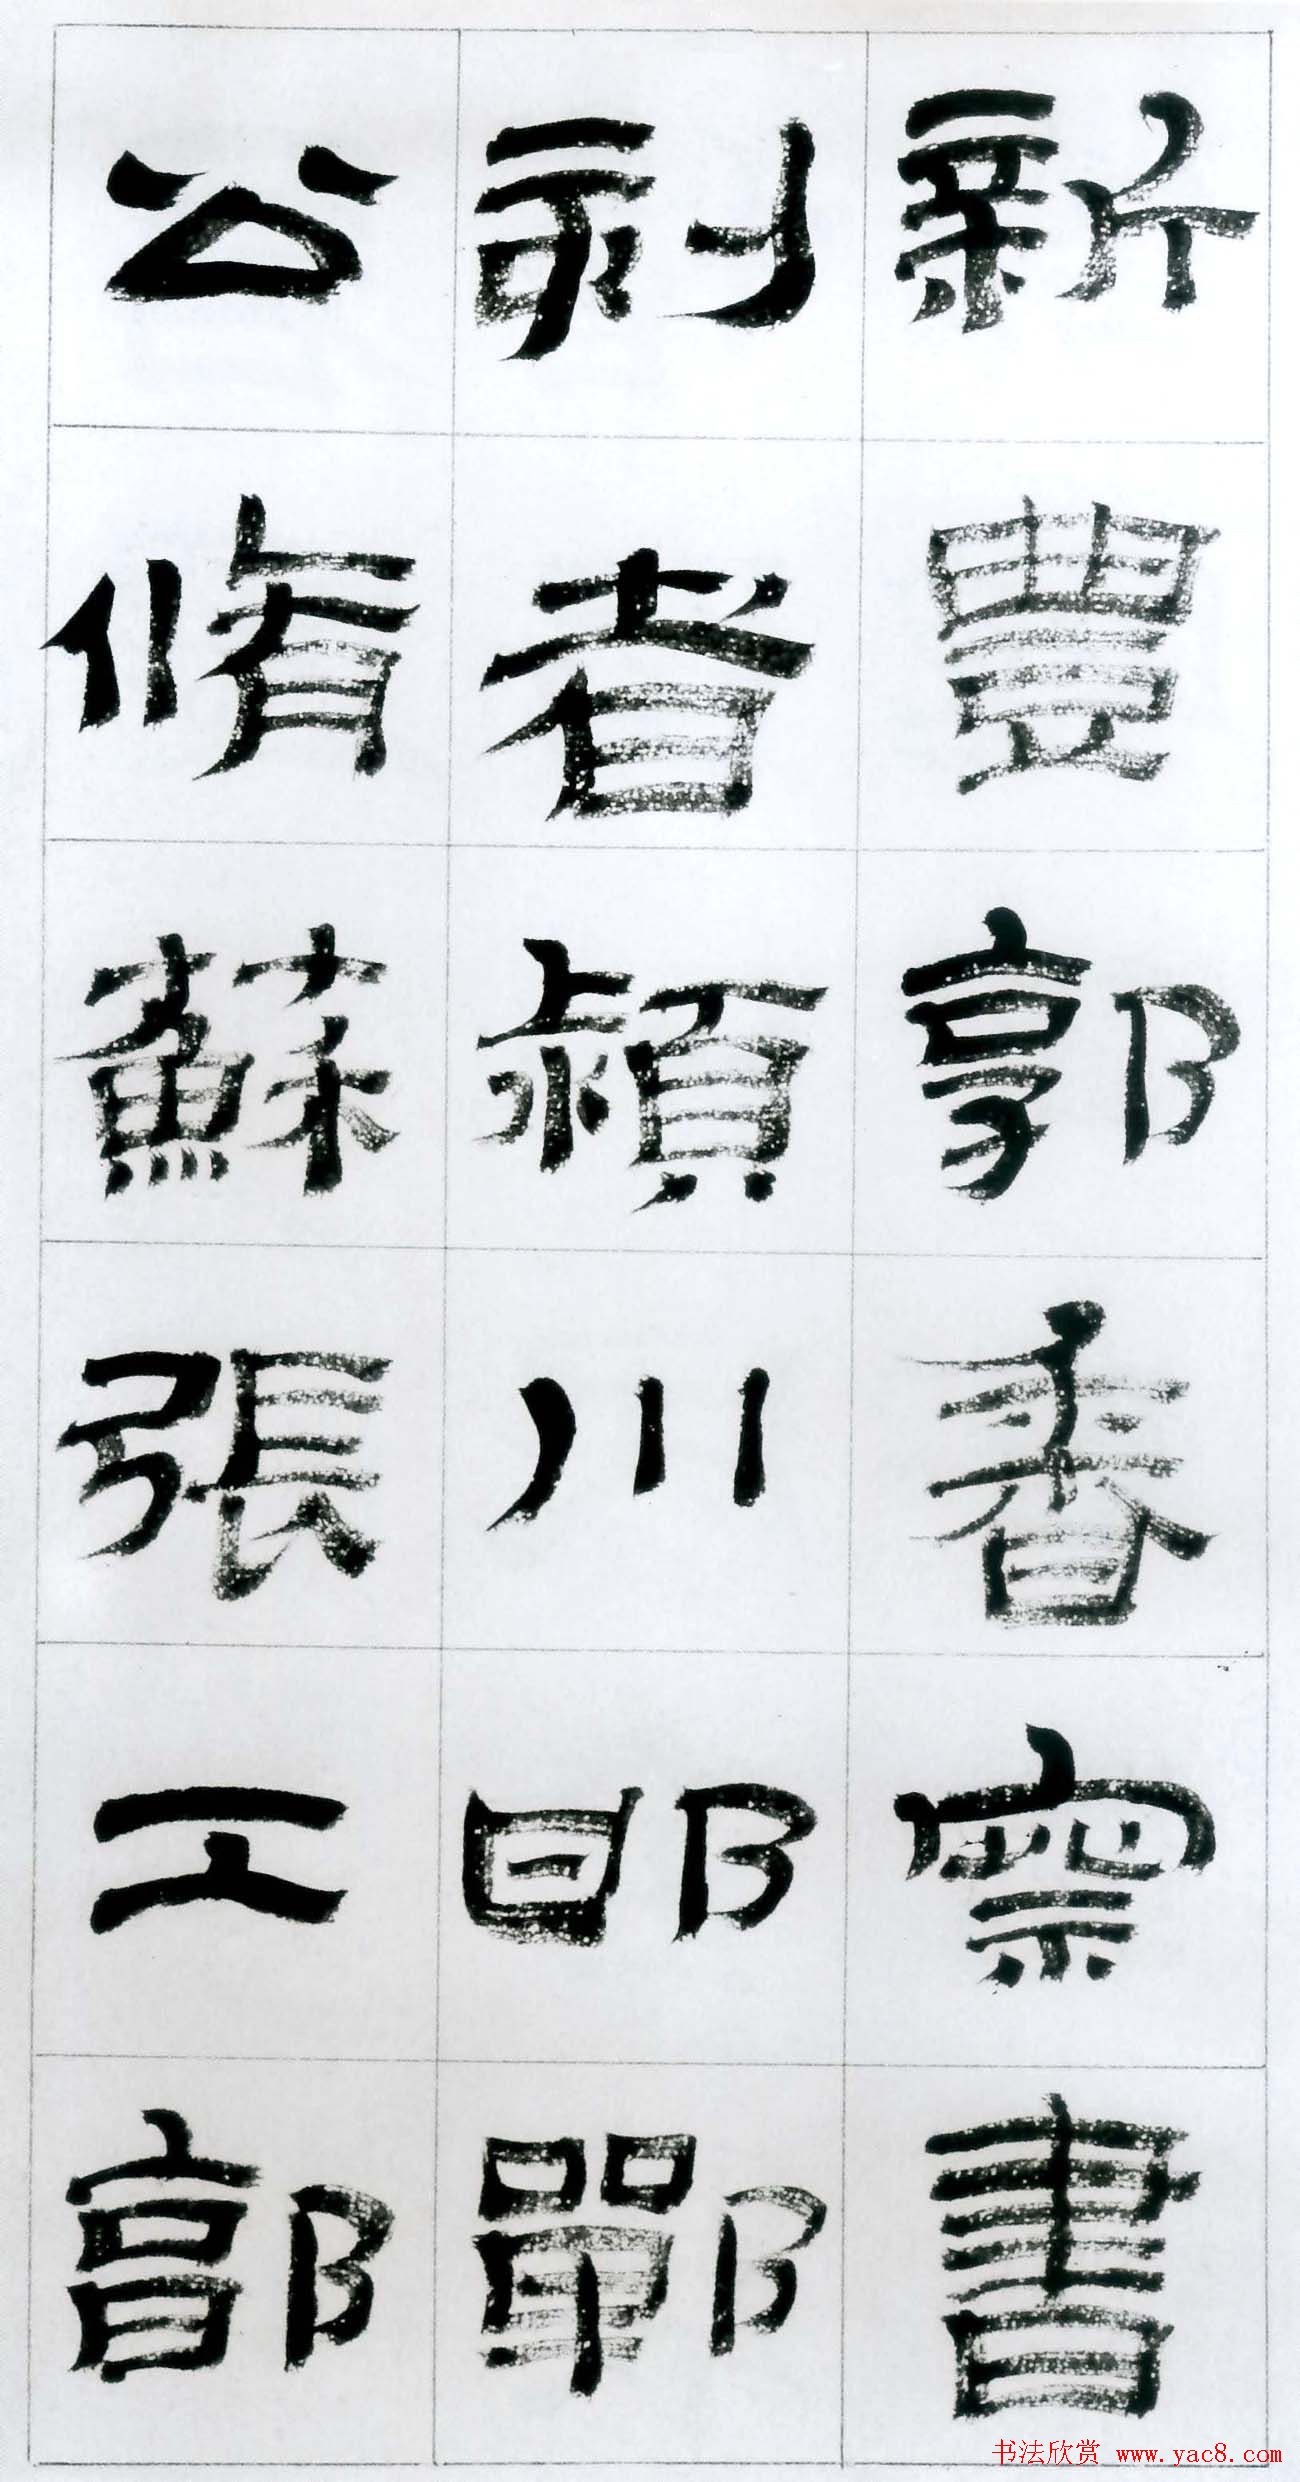 新豐郭香察書
刻者潁川邯鄲
公脩蘇張工郭
书法欣赏 www.yac8.com